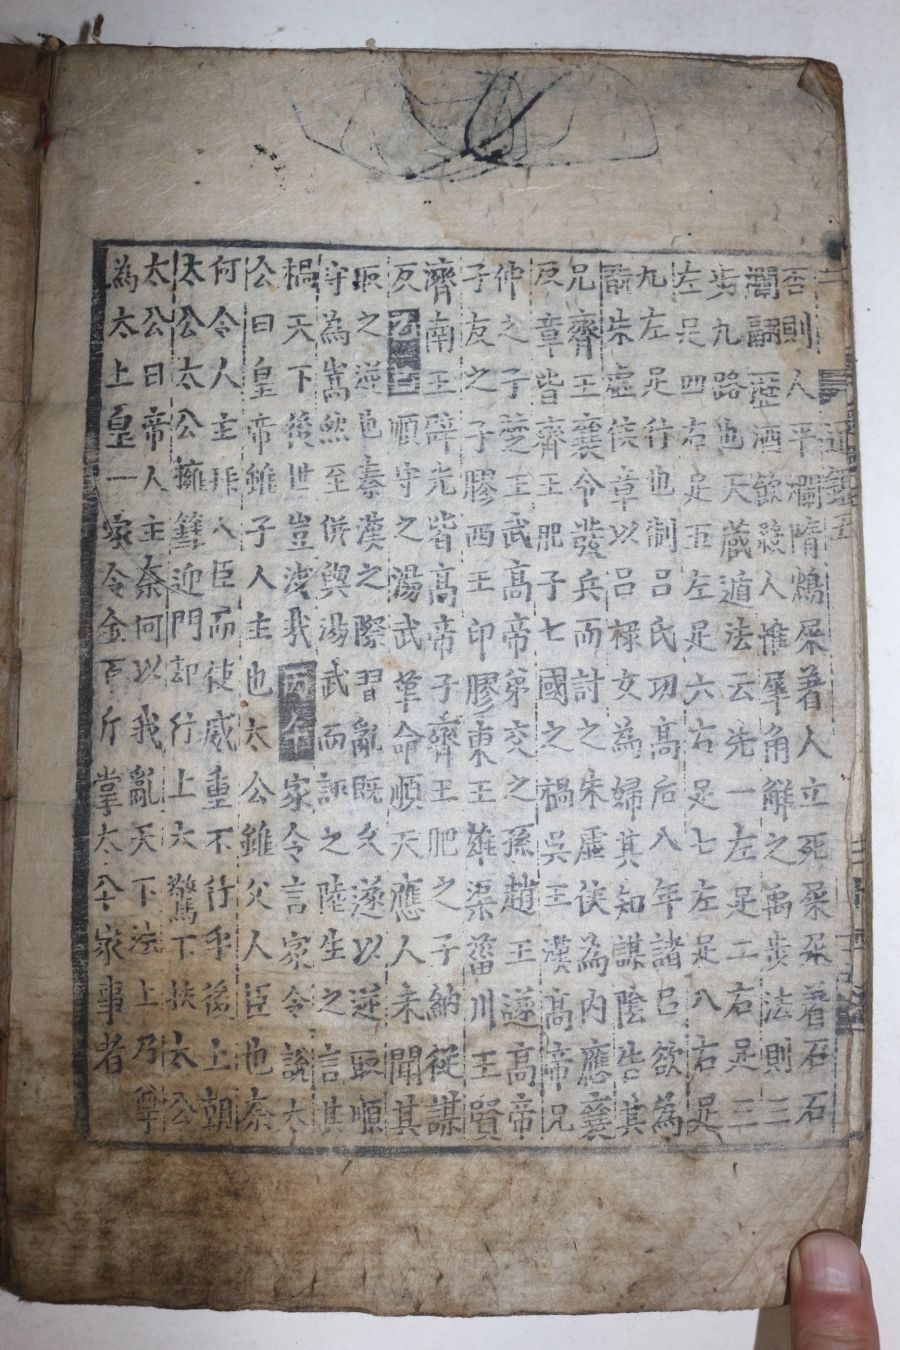 否則人平爛隋鴆屎著人立死屎尿著石石
爛嗣歷酒飲殺人惟犀角解之禹步法則三
步九路也天藏遁法云先一左足二右足三
左足四右足五左足六右足七左足八右足
九左足行也制呂氏功高后八年諸呂欲為
朱虛侯章以呂祿女為婦其知謀陰告其
兄齊王襄令發兵而討之朱虛侯為內應襄
反章皆齊王肥子七國之禍吳王漢高帝兄
仲之子楚王武高帝弟交之孫趙王遂高帝
子友之子膠西王印膠東王雄渠菑川王賢
濟南王辟光皆高帝子齊王肥之子納從謀
反順守之湯武革命順天應人未聞其
取之逆也秦漢之際習亂既久遂以逆取順
守為嵩然至併與湯武而誣之陸生之言其
禍天下後世豈淺哉丙午家令言家令說太
公曰皇帝雖子人主也太公雖父人臣也奈
何令人主拜人臣而使威重不行乎後上朝
太公太公擁篲迎門却行上大驚下扶太公
太公曰帝人主奈何以我亂天下法上乃尊
為太上皇一家令金百斤掌太公家事者